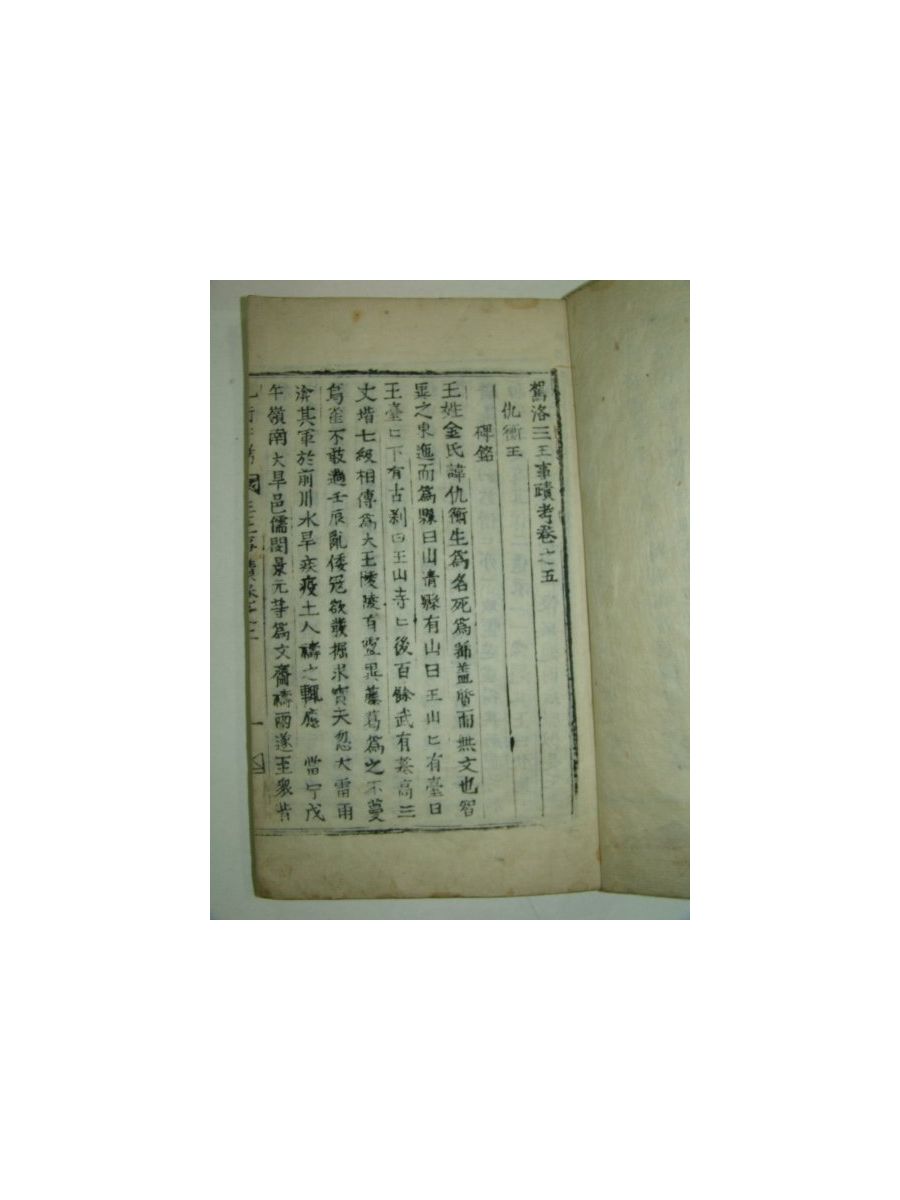 駕洛三王事蹟考卷之五
仇衡王
碑銘
王姓金氏諱仇衡生爲名死爲諡盖質而無文也智
異之東進而爲縣曰山淸縣有山曰王山匕有臺曰
王臺匕下有古刹曰王山寺匕後百餘武有墓高三
丈堦七級相傳爲大王陵陵有靈異藤葛爲之不蔓
烏雀不敢過壬辰亂倭冦欲發掘求寶天忽大雷雨
渰其軍於前川水旱疾疫土人禱之輒應 當宁戊
午嶺南大旱邑儒閔景元等爲文齋禱雨遂至衆皆